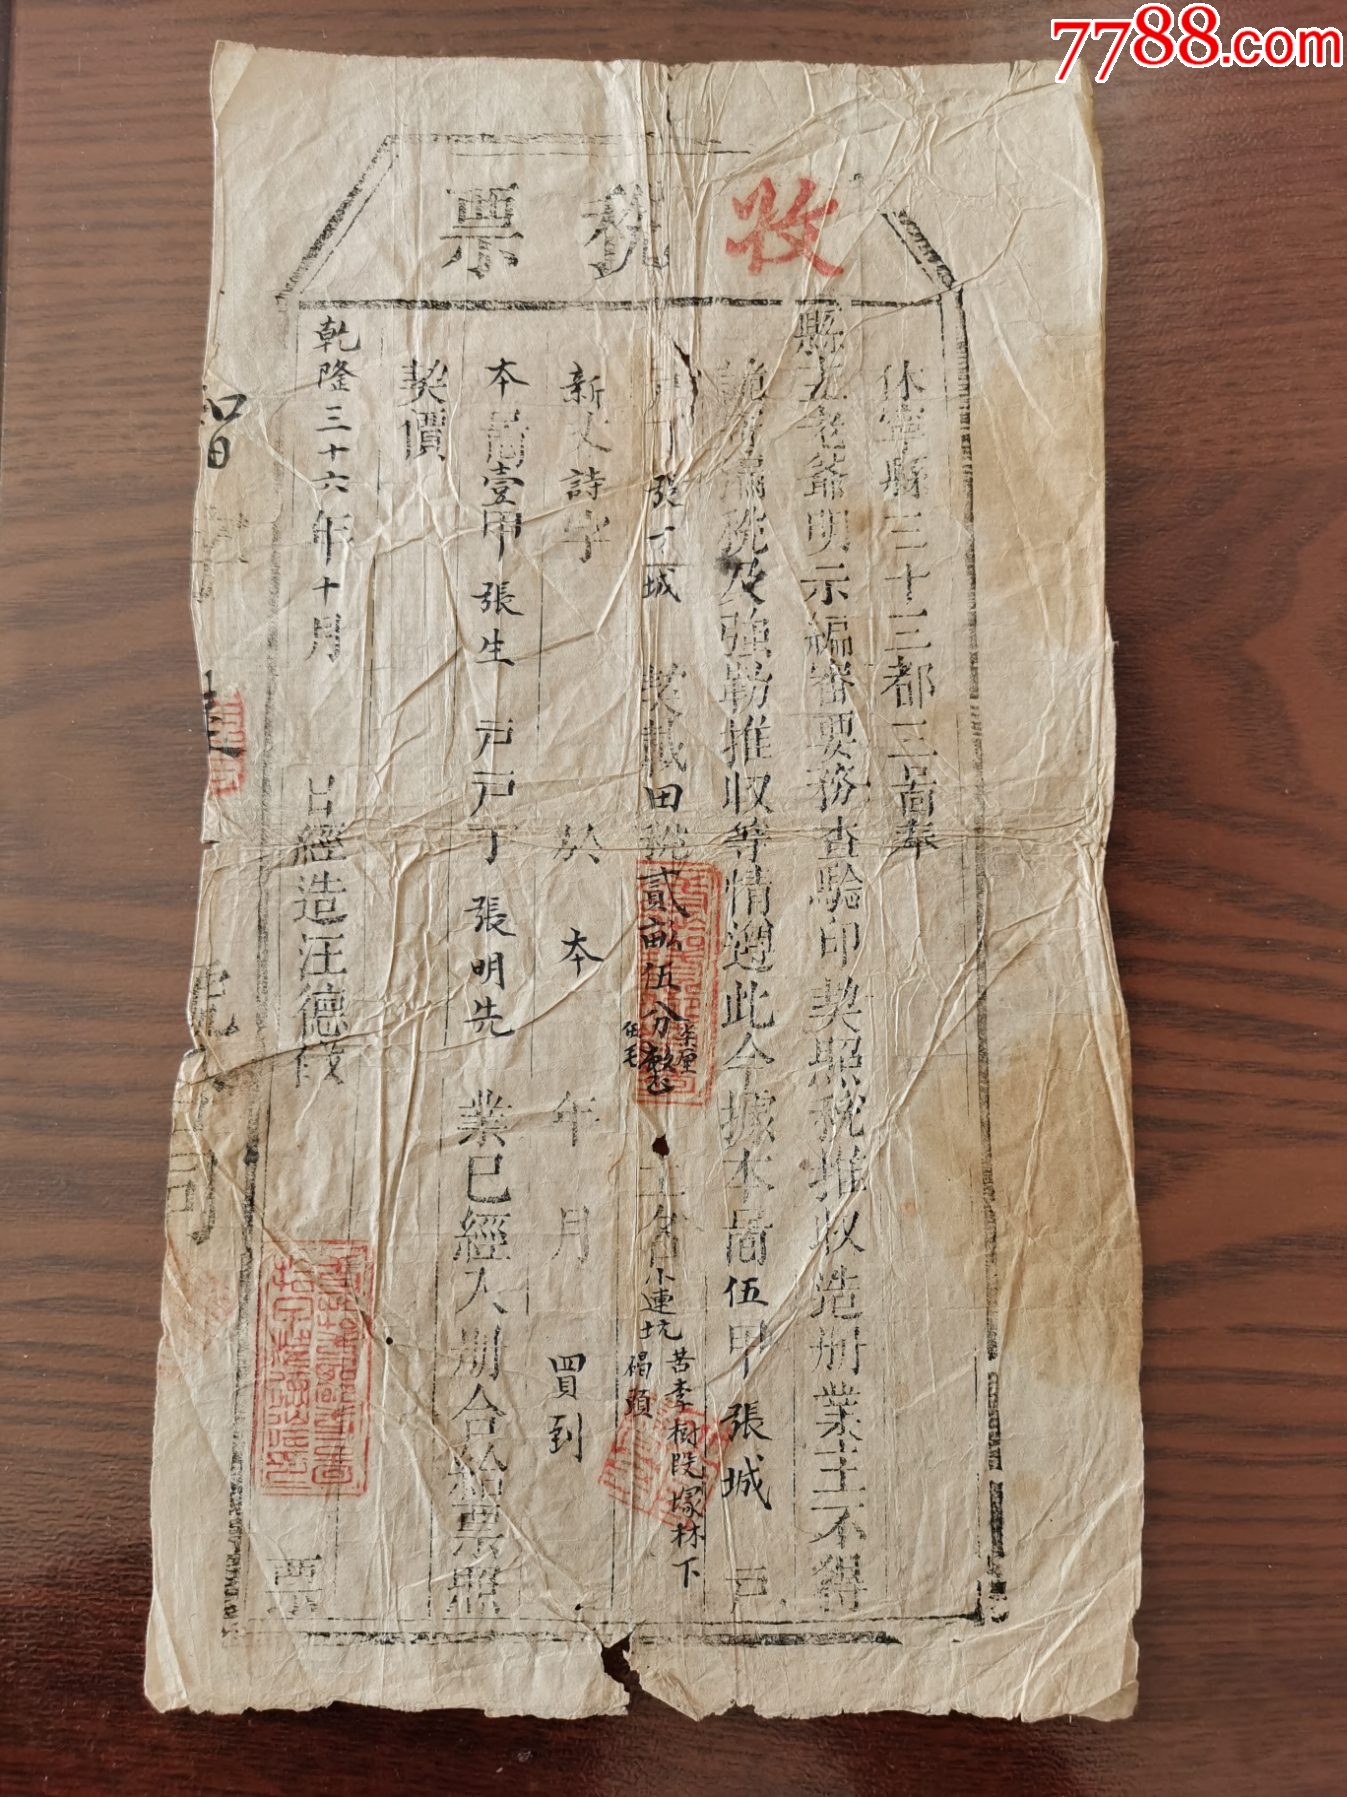 7788.com
收稅票
休寧縣三十三都三啚奉
縣主老爺明示編審要務查驗印契照稅推收造册業主不得
漏稅及強勒推收等情遵此今據本啚伍甲張城戶
張城 契載田稅貳畝伍分 土名小連坑
苦李樹段塚林下
碣頭
新丈詩字 於本年 月 買到
本啚壹甲張生戶戶丁張明先 業已經入册合給票照
契價
乾隆三十六年十月 日經造汪德 票